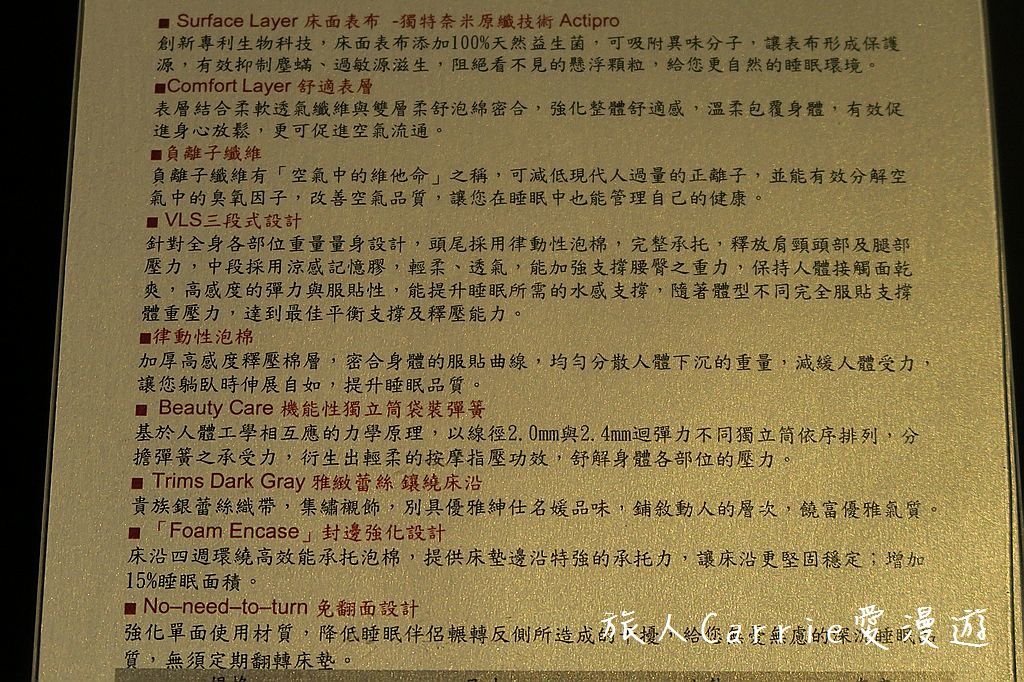 ■ Surface Layer 床面表布 -獨特奈米原纖技術 Actipro
創新專利生物科技，床面表布添加100%天然益生菌，可吸附異味分子，讓表布形成保護
源，有效抑制塵蟎、過敏源滋生，阻絕看不見的懸浮顆粒，給您更自然的睡眠環境。
■Comfort Layer 舒適表層
表層結合柔軟透氣纖維與雙層柔舒泡綿密合，強化整體舒適感，溫柔包覆身體，有效促
進身心放鬆，更可促進空氣流通。
■負離子纖維
負離子纖維有「空氣中的維他命」之稱，可減低現代人過量的正離子，並能有效分解空
氣中的臭氧因子，改善空氣品質，讓您在睡眠中也能管理自己的健康。
■ VLS三段式設計
針對全身各部位重量量身設計，頭尾採用律動性泡棉，完整承托，釋放肩頸頭部及腿部
壓力，中段採用涼感記憶膠，輕柔、透氣，能加強支撐腰臀之重力，保持人體接觸面乾
爽，高感度的彈力與服貼性，能提升睡眠所需的水感支撐，隨著體型不同完全服貼支撐
體重壓力，達到最佳平衡支撐及釋壓能力。
■律動性泡棉
加厚高感度釋壓棉層，密合身體的服貼曲線，均勻分散人體下沉的重量，減緩人體受力，
讓您躺臥時伸展自如，提升睡眠品質。
■ Beauty Care 機能性獨立筒袋裝彈簧
基於人體工學相互應的力學原理，以線徑2.0mm與2.4mm迴彈力不同獨立筒依序排列，分
擔彈簧之承受力，衍生出輕柔的按摩指壓功效，舒解身體各部位的壓力。
■ Trims Dark Gray 雅緻蕾絲 鑲繞床沿
貴族銀蕾絲織帶，集繡襯飾，別具優雅紳仕名媛品味，鋪敘動人的層次，饒富優雅氣質。
■ 「Foam Encase」封邊強化設計
床沿四週環繞高效能承托泡棉，提供床墊邊沿特強的承托力，讓床沿更堅固穩定；增加
15%睡眠面積。
■ No–need–to–turn 免翻面設計
強化單面使用材質，降低睡眠伴侶輾轉反側所造成的 擾，給您 受無慮的深 睡眠品
質，無須定期翻轉床墊。
旅人Carrie愛漫遊